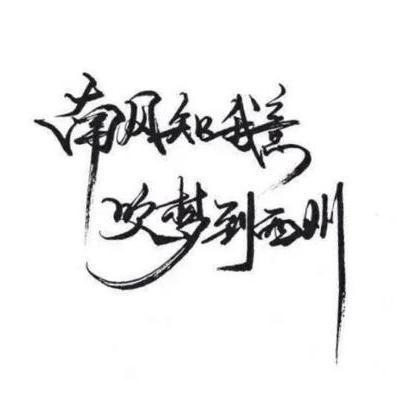 南风知我意
吹梦到西州